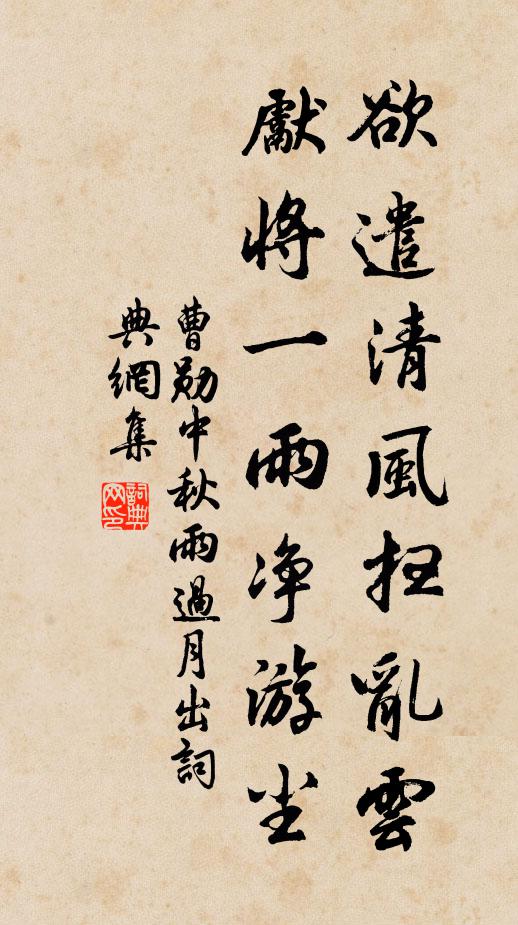 欲遣清風扫亂雲
獻將一雨净游尘
曹勋中秋雨過月出詞
典網集
詞典
网印